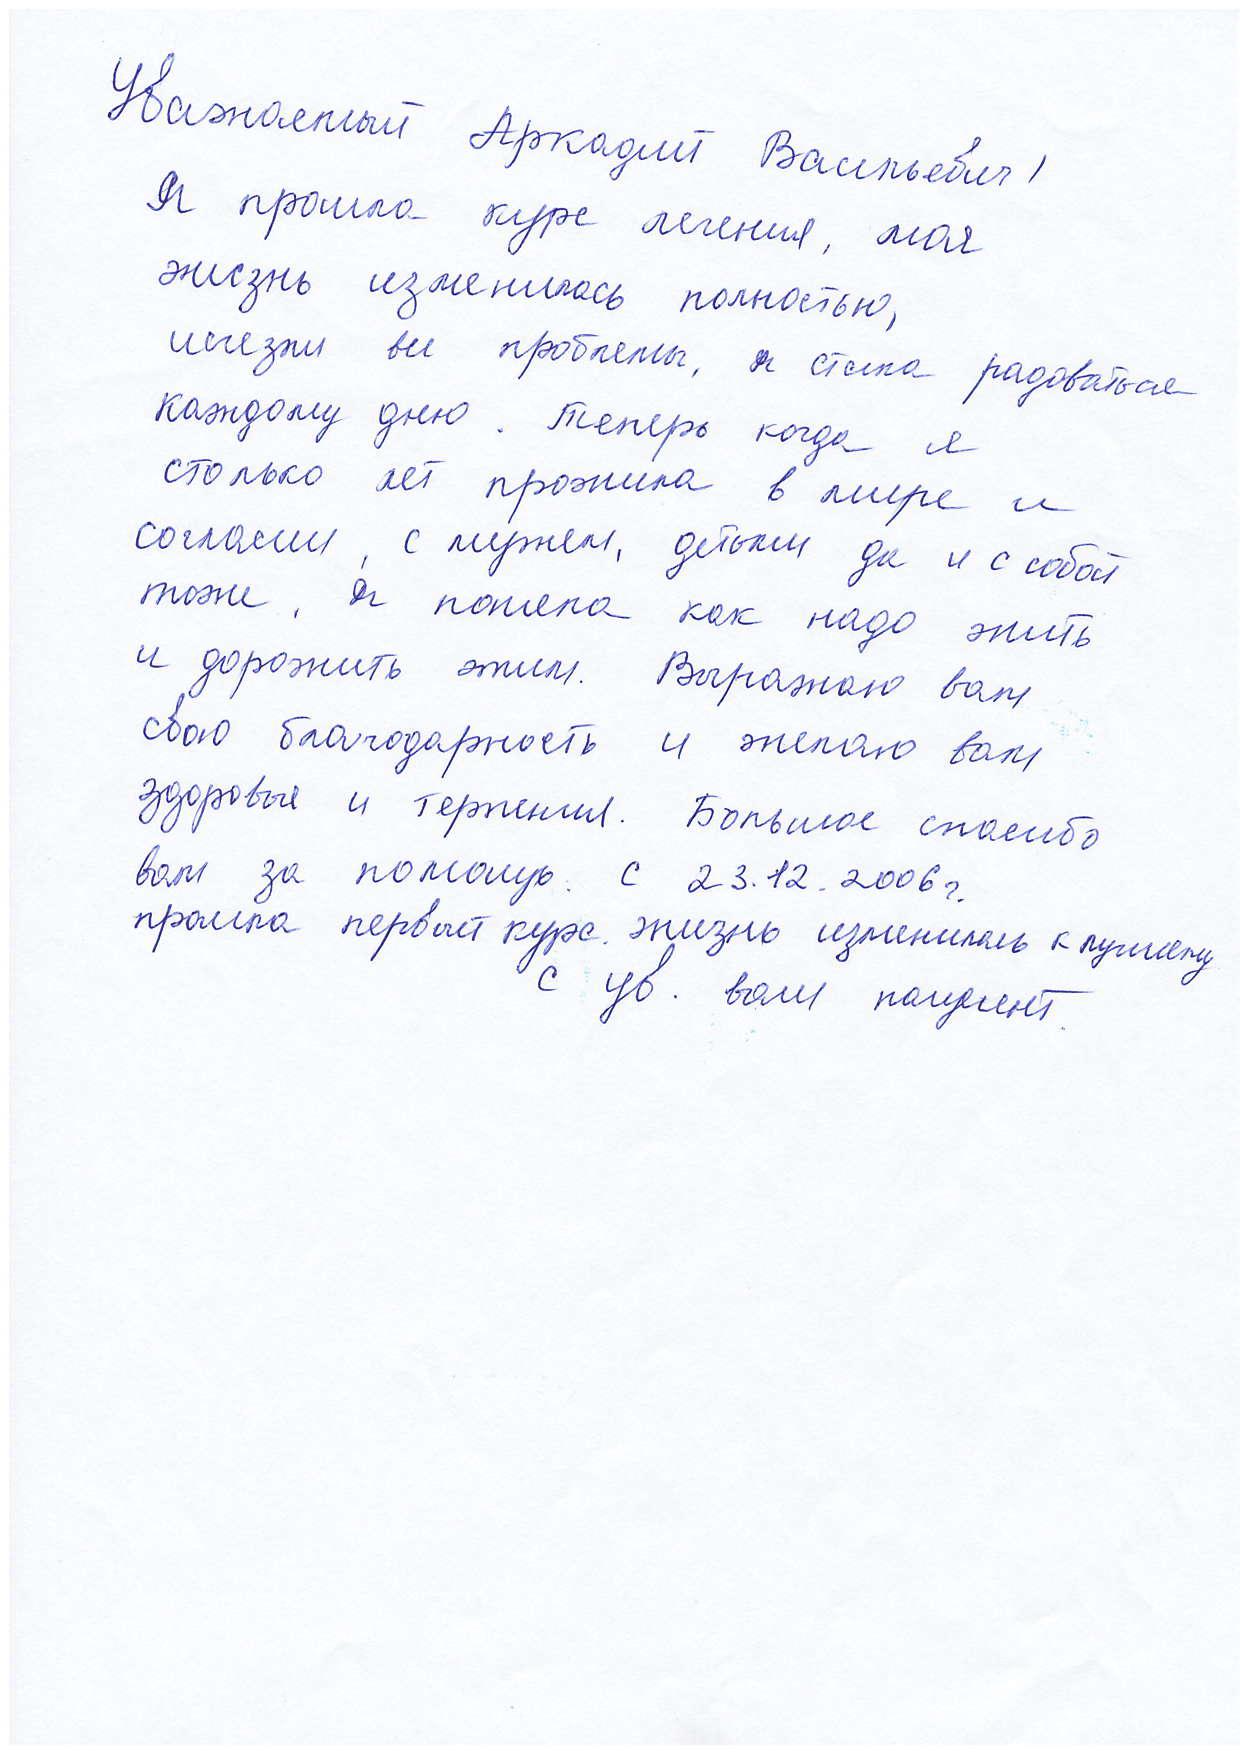 Уважаемый Аркадий Васильевич!
Я прошла курс лечения, моя
жизнь изменилась полностью,
исчезли все проблемы, я стала радоваться
каждому дню. Теперь когда я
столько лет прожила в мире и
согласии, с мужем, детьми да и с собой
тоже, я поняла как надо жить
и дорожить этим. Выражаю вам
свою благодарность и желаю вам
здоровья и терпения. Большое спасибо
вам за помощь. С 23.12.2006г.
прошла первый курс. жизнь изменилась к лучшему
С ув. ваш пациент.